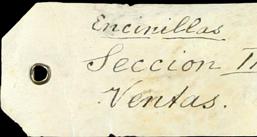 Encinillas
Seccion II
Ventas.